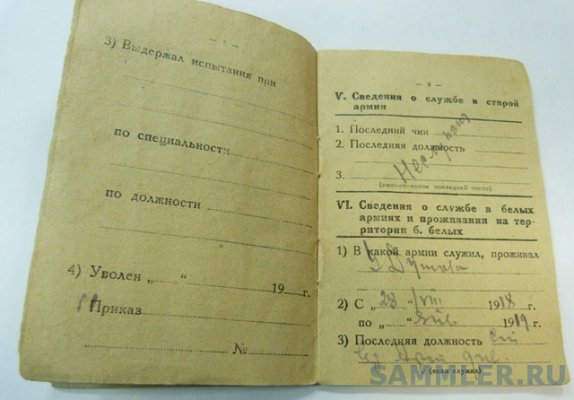 3) Выдержал испытания при
по специальности
по должности
4) Уволен „ “ 19 г.
Приказ
№
— 9 —
V. Сведения о службе в старой
армии
1. Последний чин
2. Последняя должность
3.
(наименование последней части)
VI. Сведения о службе в белых
армиях и проживании на тер-
ритории б. белых
1) В какой армии служил, проживал
У Дутова
2) С „28“ VIII 1918 г.
по „ “ янв 1919 г.
3) Последняя должность
(если служил)
SAMMLER.RU